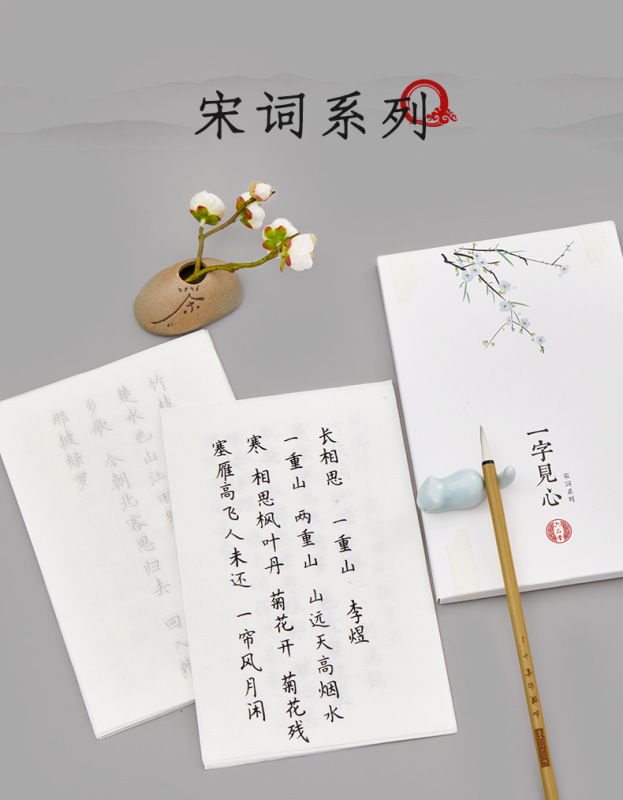 宋词系列
茶
一字見心
宋词系列
长相思 一重山 李煜
一重山 两重山 山远天高烟水
寒 相思枫叶丹 菊花开 菊花残
塞雁高飞人未还 一帘风月闲
竹枝
楚水巴山江雨
乡歌 今朝北客思归去 回入纥
那披绿罗